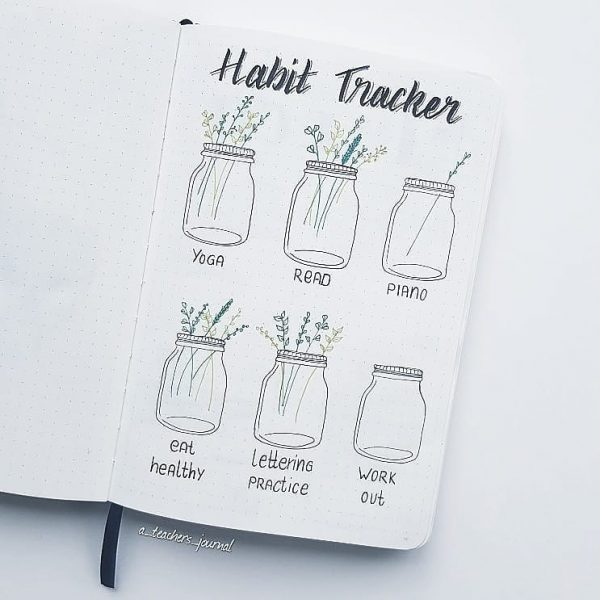 Habit Tracker
YOGA
READ
PIANO
eat
healthy
lettering
PRACTICE
WORK
out
a_teachers_journal